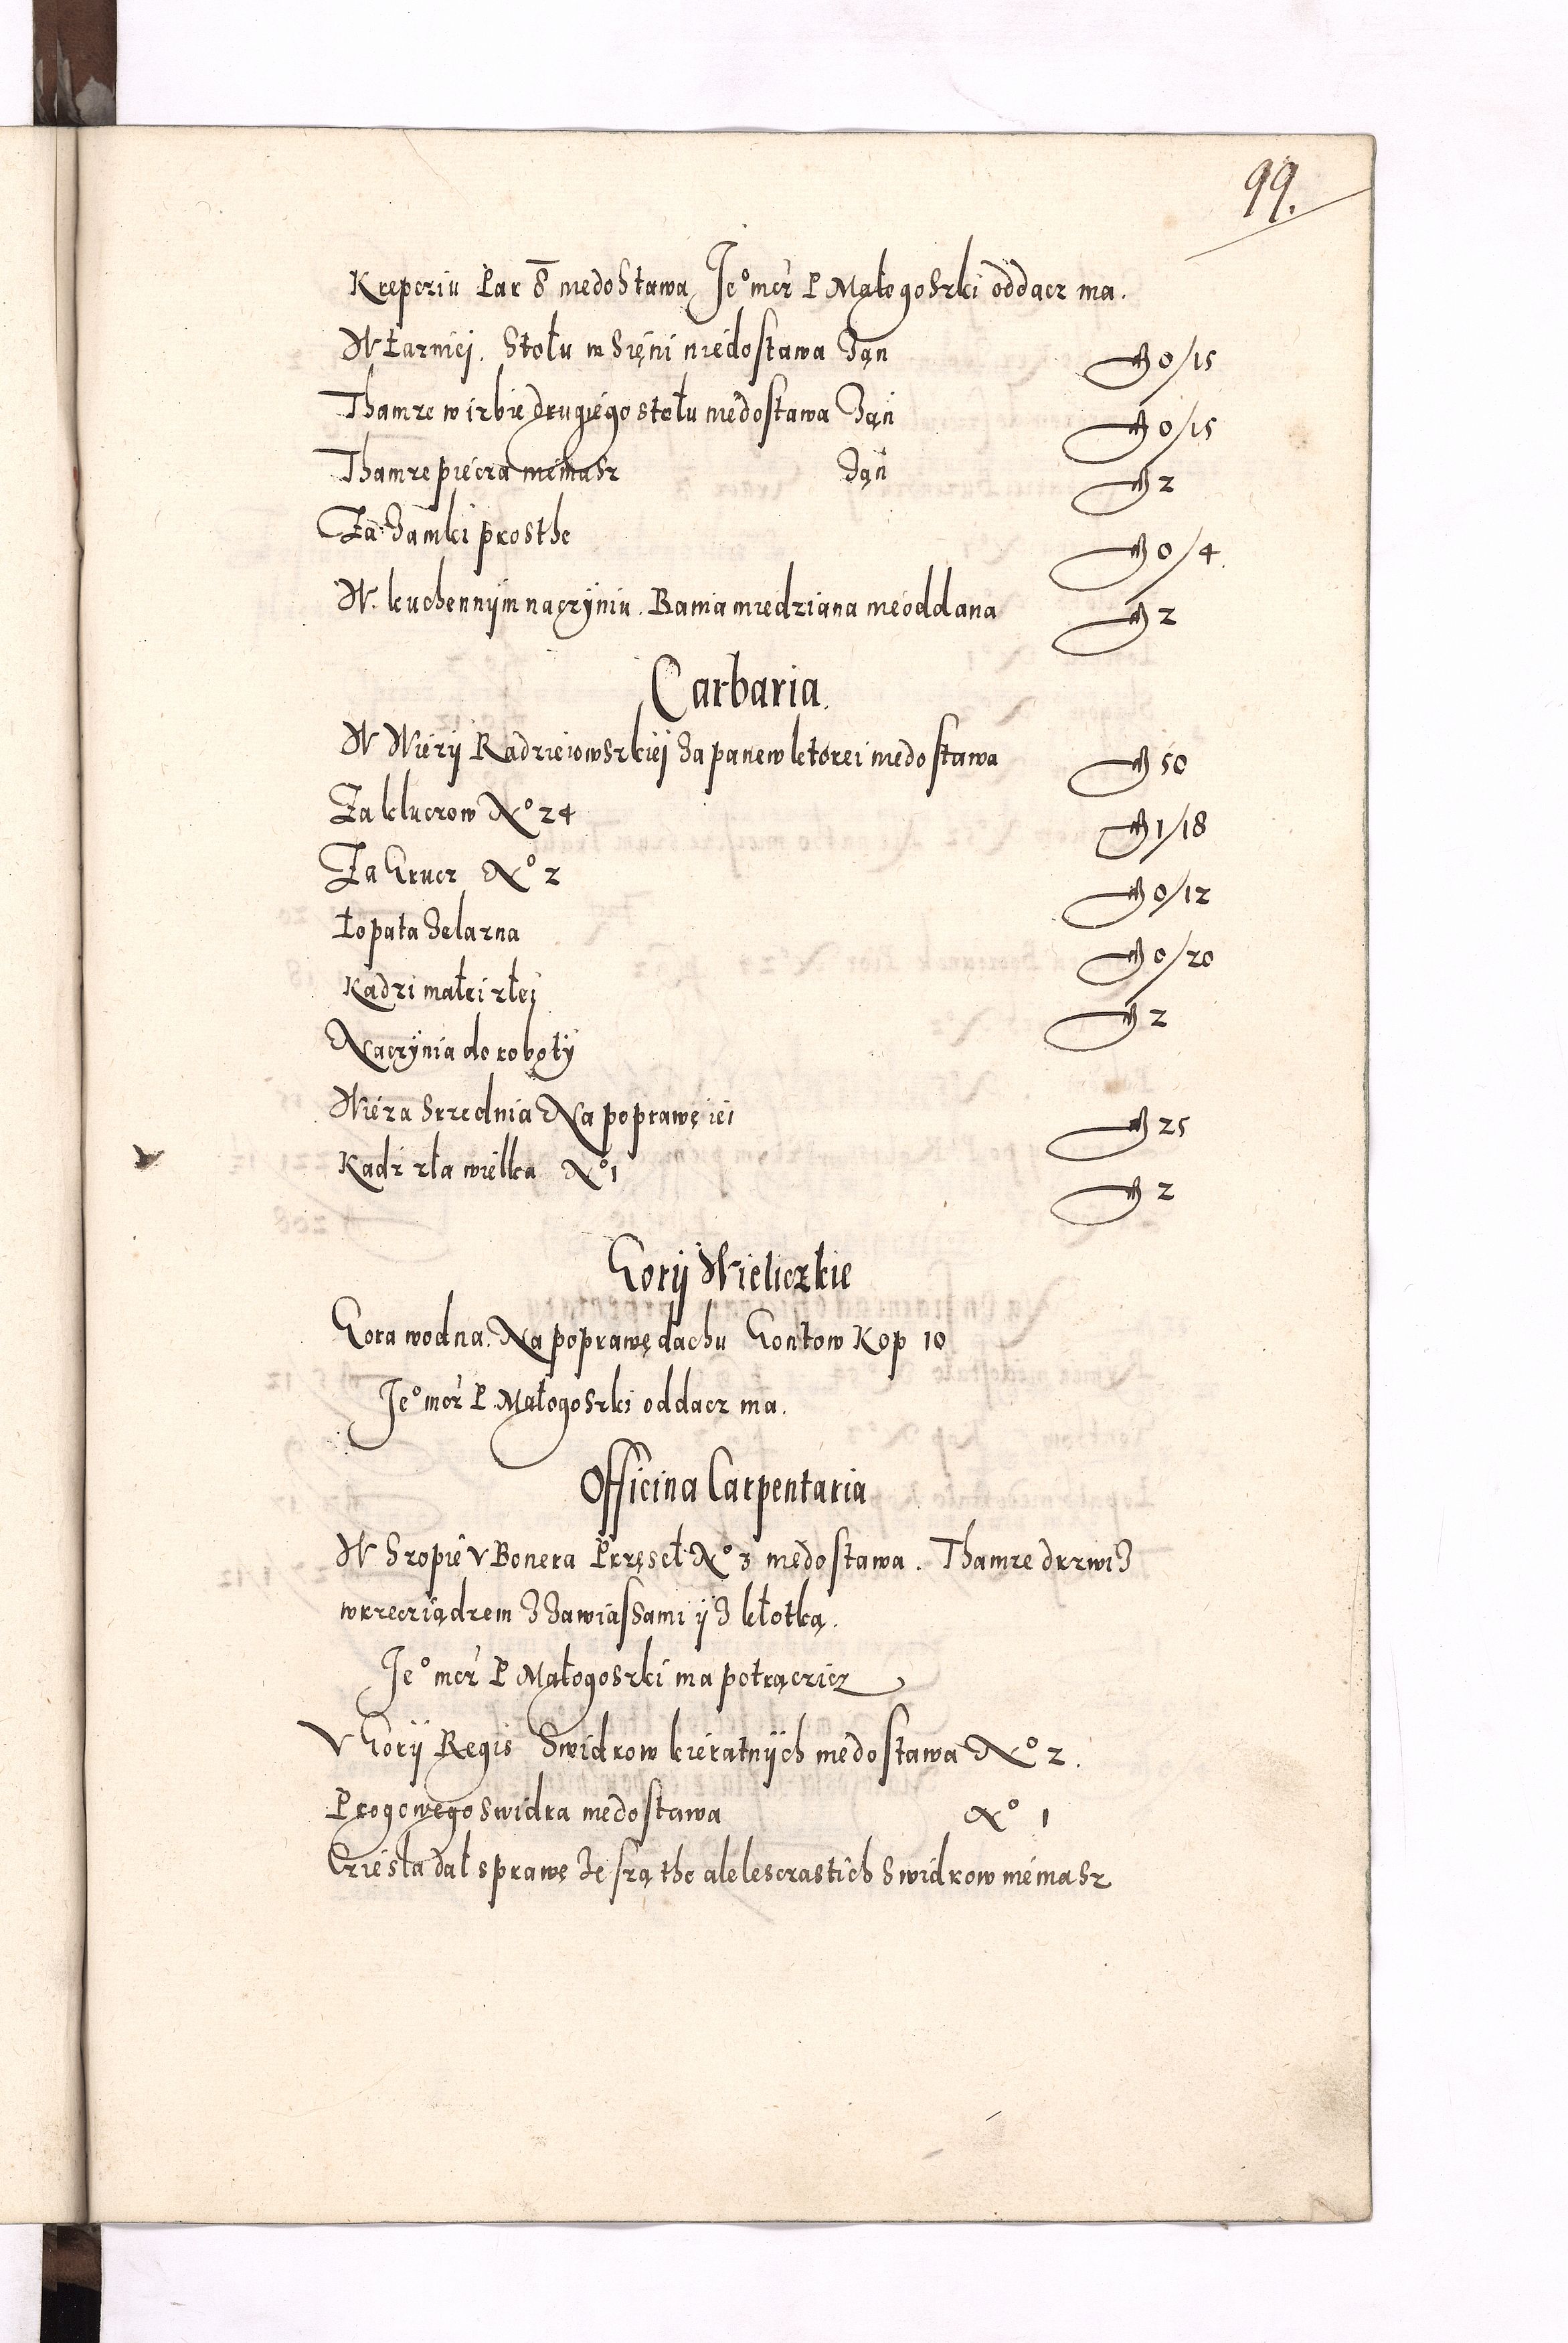 99.
Krepcziu Par 8 niedostawa Je° mcz P Małogoszki oddacz ma.
W Łazniej. Stołu w Sięni niedostawa Zań fl 0/15
Thamze w izbie drugiégo stołu niedostawa Zań fl 0/15
Thamze piécza niémasz Zań fl 2
Za Zamki prosthe fl 0/4.
W kuchennÿm naczÿniu. Bania miedziana niéoddana fl 2
Carbaria.
W Wiéżÿ Radzieiowszkiéj Za panew ktorei niedostawa fl 50
Za kluczow N° 24 fl 1/18
Za Grucz N° 2 fl 0/12
Łopata Zelazna fl 0/20
Kadzi małei złej fl 2
Naczÿnia do robotÿ
Wiéza Srzednia Na poprawę iei fl 25
Kadz zła wielka N° 1 fl 2
Gorÿ Wieliczkie
Gora wodna. Na poprawę dachu Gontow Kop 10
Je° mcz P. Małogoszki oddacz ma.
Officina Carpentaria
W Szopié v Bonera Przęseł N° 3 niedostawa. Thamze drzwi Z
wrzecziądzem Z Zawiassami ÿ Z kłotką.
Je° mcz P Małogoszki ma potrączicz
V Gorÿ Regis Swidrow kiératnÿch niedostawa N° 2.
Progowego swidra niedostawa N° 1
Cziésla dał sprawę Ze są the ale lesczastich Swidrow niémasz